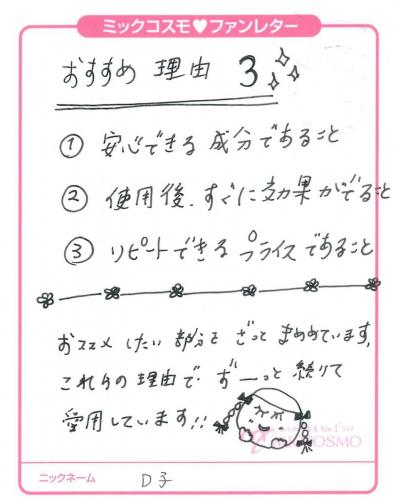 ミックコスモ♥ファンレター
おすすめ 理由 3
① 安心できる成分であること
② 使用後、すぐに効果がでること
③ リピートできるプライスであること
おススメしたい部分をざっとまとめています。
これらの理由で ずーっと続けて
愛用しています!!
No.1コスメ
COSMO
ニックネーム D子